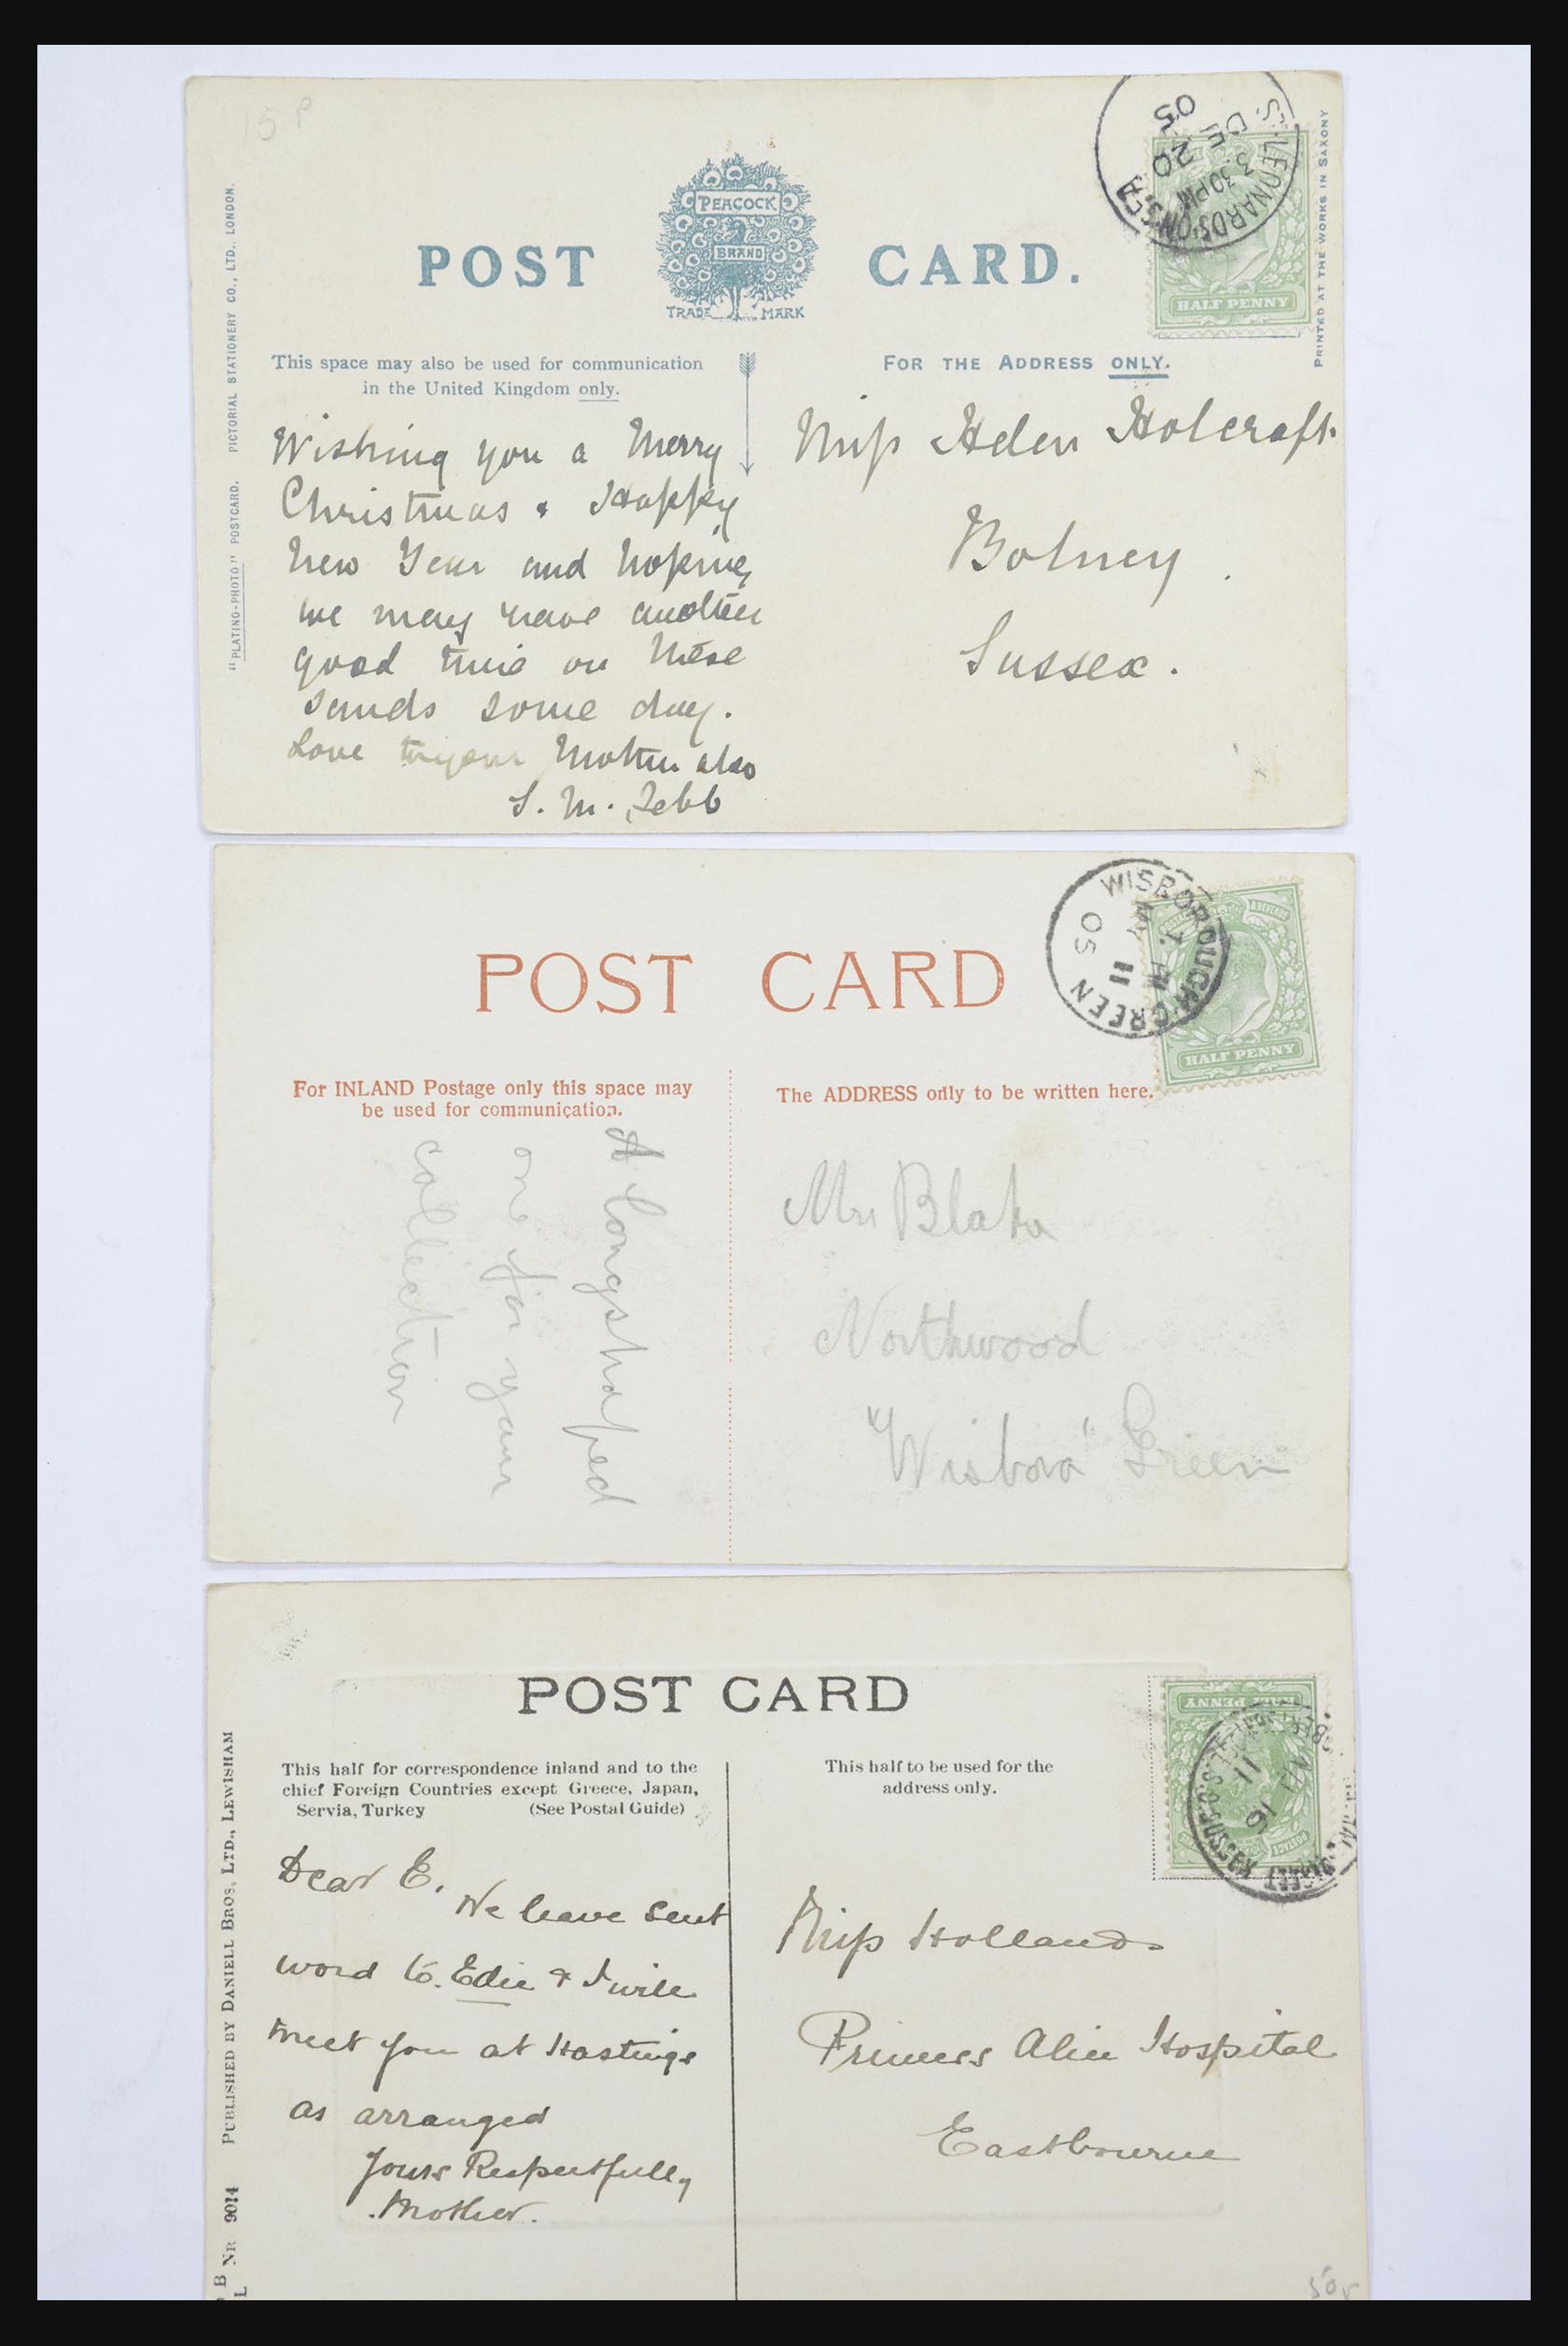 15 P
PEACOCK
BRAND
TRADE MARK
POST CARD.
"PLATINO-PHOTO" POSTCARD. PICTORIAL STATIONERY CO., LTD., LONDON.
PRINTED AT THE WORKS IN SAXONY
ST LEONARDS ON SEA
3.30 PM
DE 20
05
HALF PENNY
This space may also be used for communication
in the United Kingdom only.
FOR THE ADDRESS ONLY.
Wishing you a Merry
Christmas & Happy
New Year and hoping
we may have another
good time on these
sands some day.
Love to your Mother also
S. M. Jebb
Miss Helen Holcraft.
Bolney.
Sussex.
POST CARD
WISBOROUGH GREEN
MY 11
05
HALF PENNY
For INLAND Postage only this space may
be used for communication.
The ADDRESS only to be written here.
A longshaped
one for your
collection
Mrs Blake
Northwood
"Wisboro' Green
POST CARD
HALF PENNY
This half for correspondence inland and to the
chief Foreign Countries except Greece, Japan,
Servia, Turkey (See Postal Guide)
This half to be used for the
address only.
NR 9014 PUBLISHED BY DANIELL BROS, LTD., LEWISHAM
Dear E.
We have sent
word to Edie & I will
meet you at Hastings
as arranged
Yours Respectfully
Mother.
Miss Hollands
Princess Alice Hospital
Eastbourne